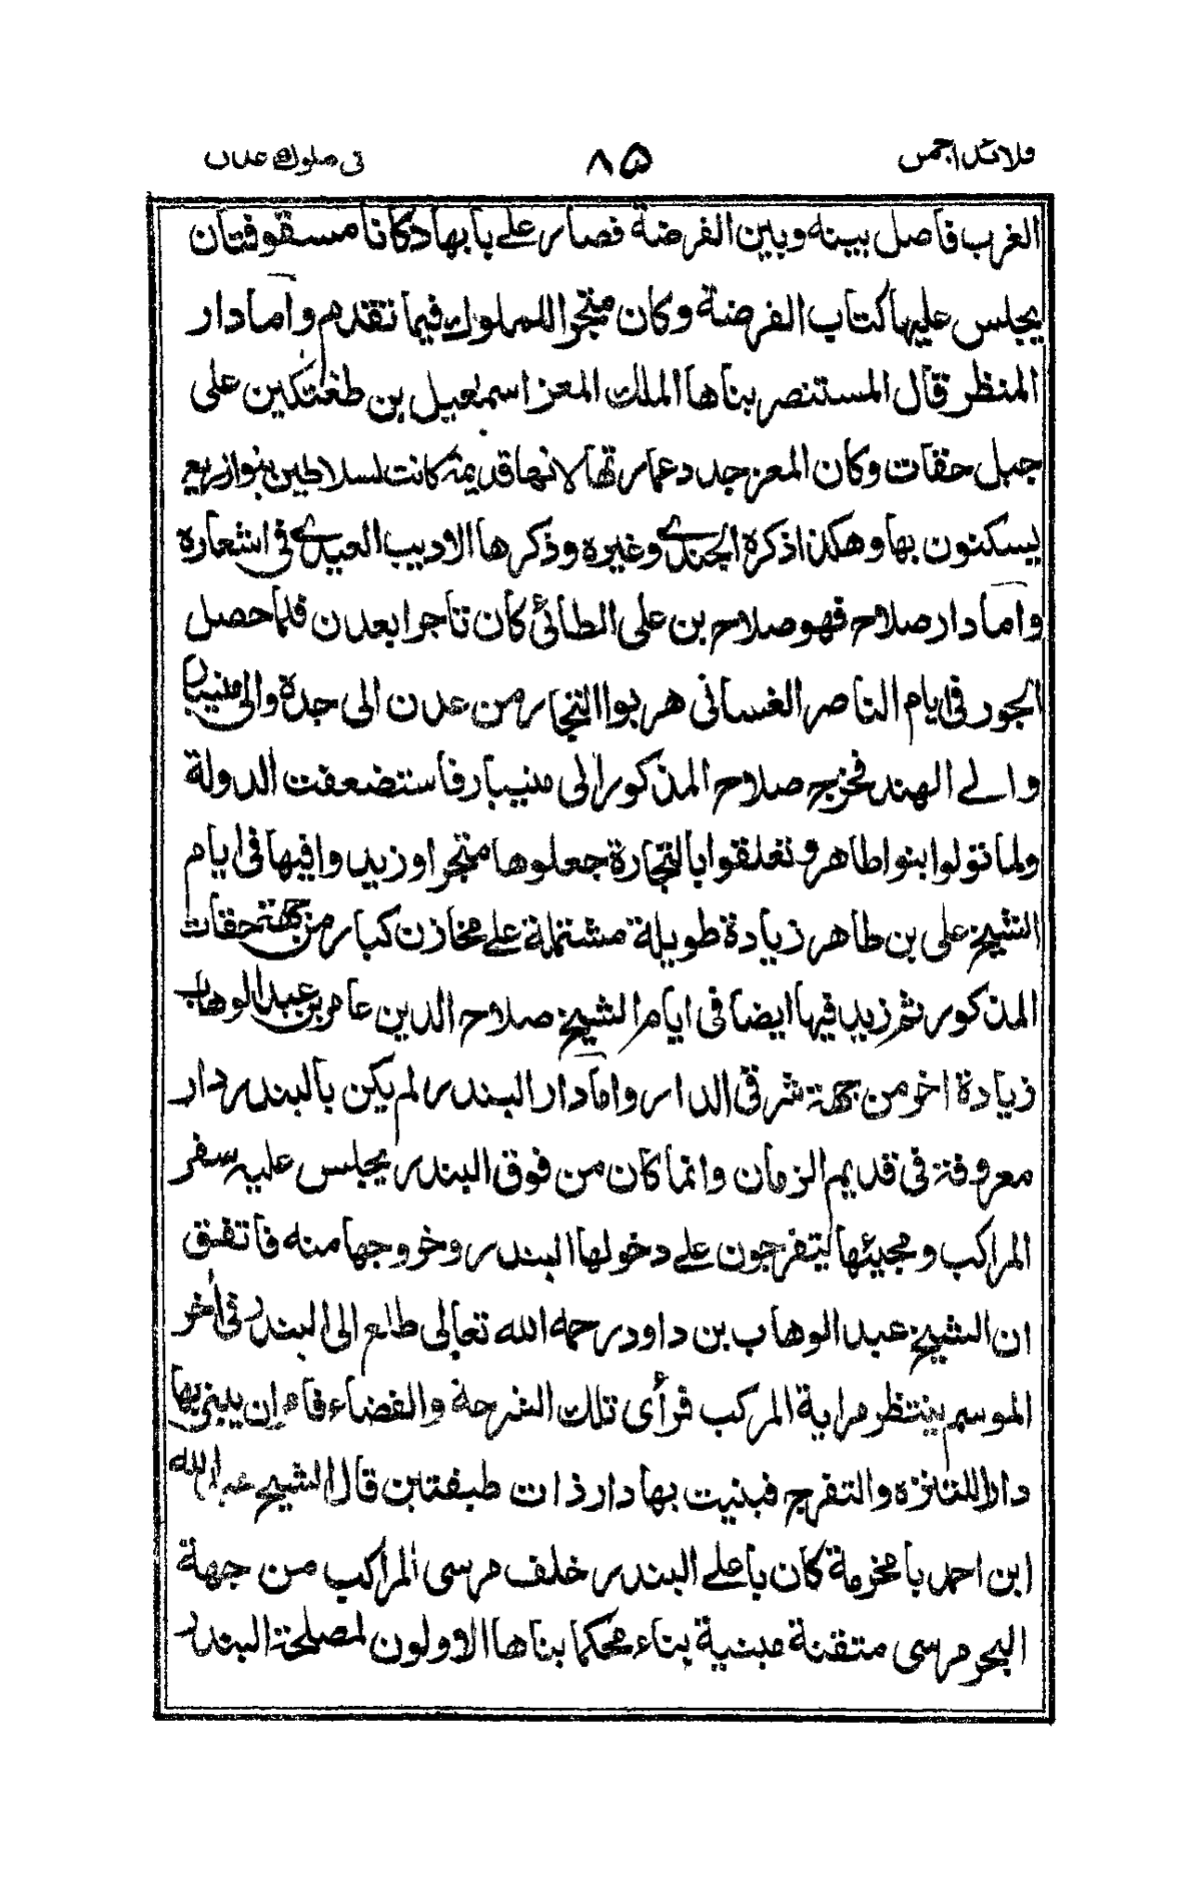 قلائد الجمن ٨٥ فى ملوك عدن
الغرب فاصل بينه وبين الفرضة فصار على بابها دكانا مسقوفتان
يجلس عليها كتاب الفرضة وكان متجرا للملوك فيما تقدم وآما دار
المنظر قال المستنصر بناها الملك المعز اسمعيل بن طغتكين على
جبل حقات وكان المعز جدد عمارتها لانها قديمة كانت لسلاطين بنوازريع
يسكنون بها وهكذا ذكره الجندي وغيره وذكرها الاديب العيدي فى اشعاره
وآما دار صلاح فهو صلاح بن على الطائى كان تاجرا بعدن فلما حصل
الجور فى ايام الناصر الغسانى هربوا التجار من عدن الى جدة والى منيبار
والے الهند فخرج صلاح المذكور الى منيبار فاستضعفت الدولة
ولما تولوا بنوا طاهر وتعلقوا بالتجارة جعلوها متجرا وزيد وافيها فى ايام
الشيخ على بن طاهر زيادة طويلة مشتملة على مخازن كبار من جهة حقات
المذكور ثم زيد فيها ايضا فى ايام الشيخ صلاح الدين عامر بن عبد الوهاب
زيادة اخو من جهة شرقى الدار وآما دار البندر لم يكن بالبندر دار
معروفة فى قديم الزمان وانما كان من فوق البندر يجلس عليه سفر
المراكب ومجيئها ليتفرجون على دخولها البندر وخروجها منه فاتفق
ان الشيخ عبد الوهاب بن داود رحمه الله تعالى طلع الى البندر فى أخر
الموسم ينتظر مراية المركب فرأى تلك الشرحة والفضاء فامر ان يبنى بها
دارا للتنزه والتفرج فبنيت بها دار ذات طبقتين قال الشيخ عبد الله
ابن احمد بامخرمة كان باعلے البندر خلف مرسى المراكب من جهة
البحر مرسى متقنة مبنية بناء محكما بناها الاولون لمصلحة البندر